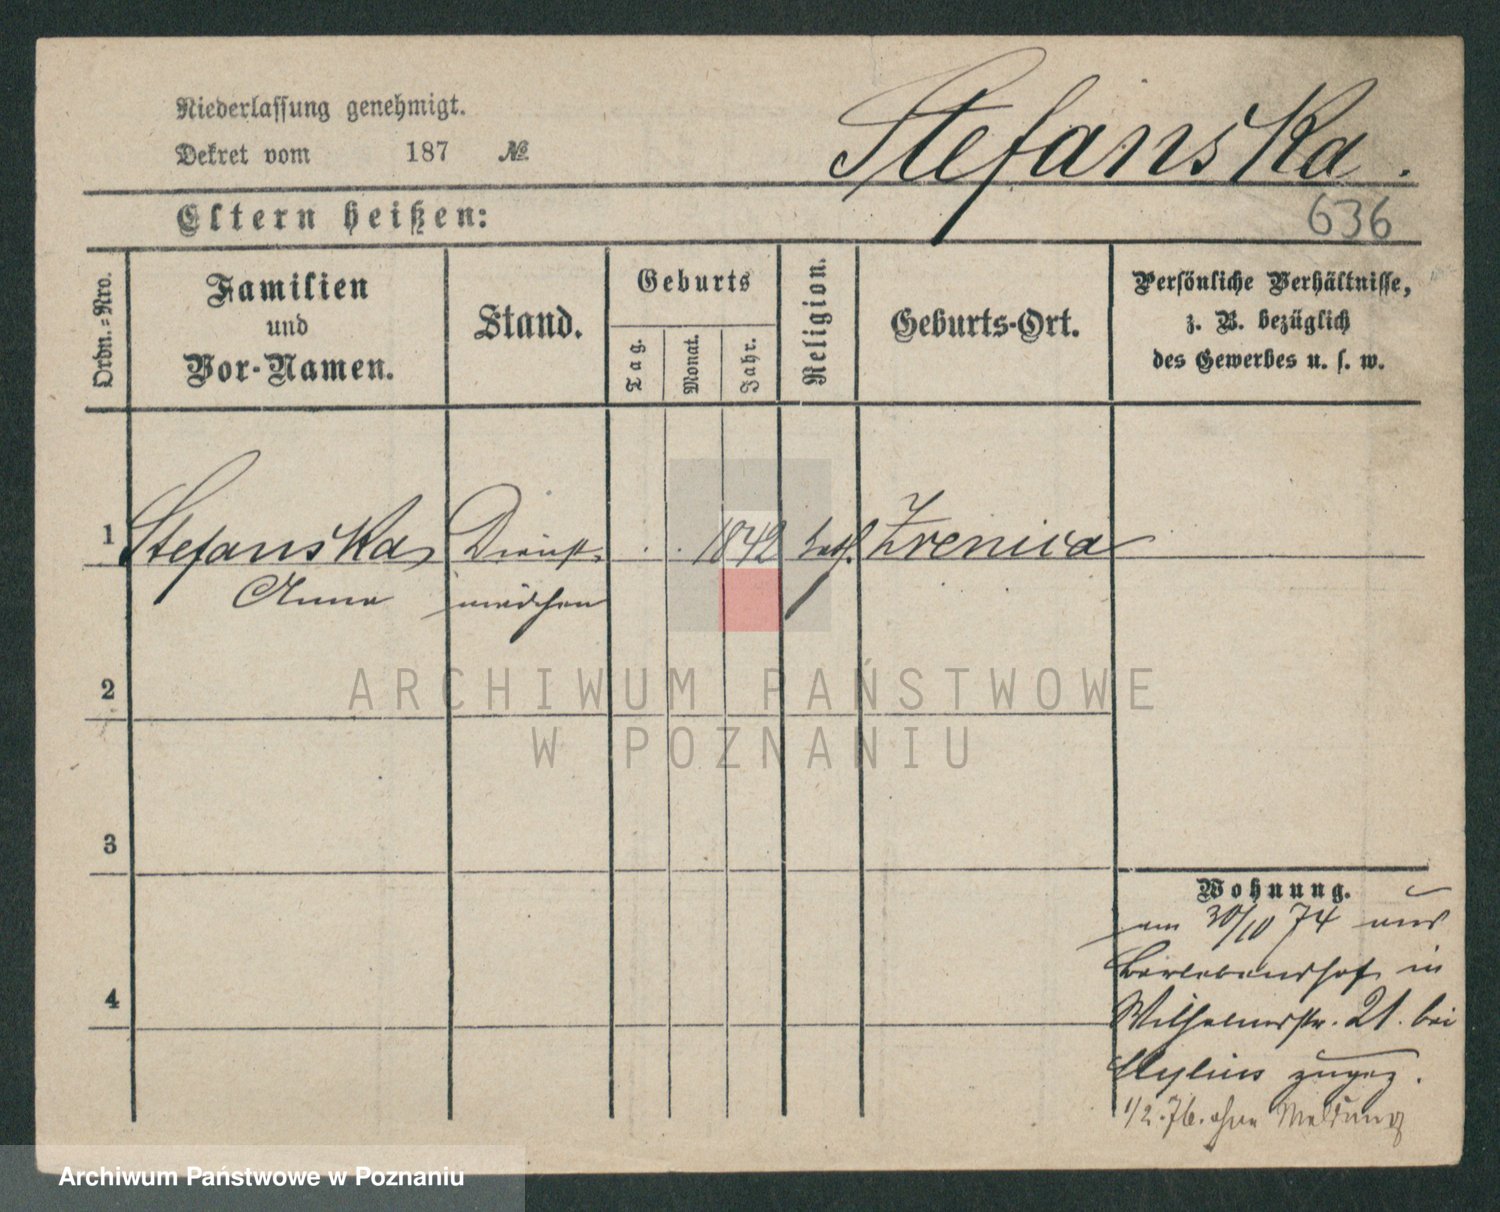 Niederlassung genehmigt.
Dekret vom 187 №
Stefanska.
Eltern heißen:
636
Ordn.-Nro.
Familien
und
Vor-Namen.
Stand.
Geburts
Tag.
Monat.
Jahr.
Religion.
Geburts-Ort.
Persönliche Verhältnisse,
z. B. bezüglich
des Gewerbes u. s. w.
1 Stefanska Dienst- . . 1842 kath. Zrenica
Anna mädchen
2
3
4
Wohnung.
am 30/10 74 aus
in
Wilhelmstr. 21. bei
Mylius zugez.
1/2. 76. ohne Meldung
ARCHIWUM PAŃSTWOWE
W POZNANIU
Archiwum Państwowe w Poznaniu